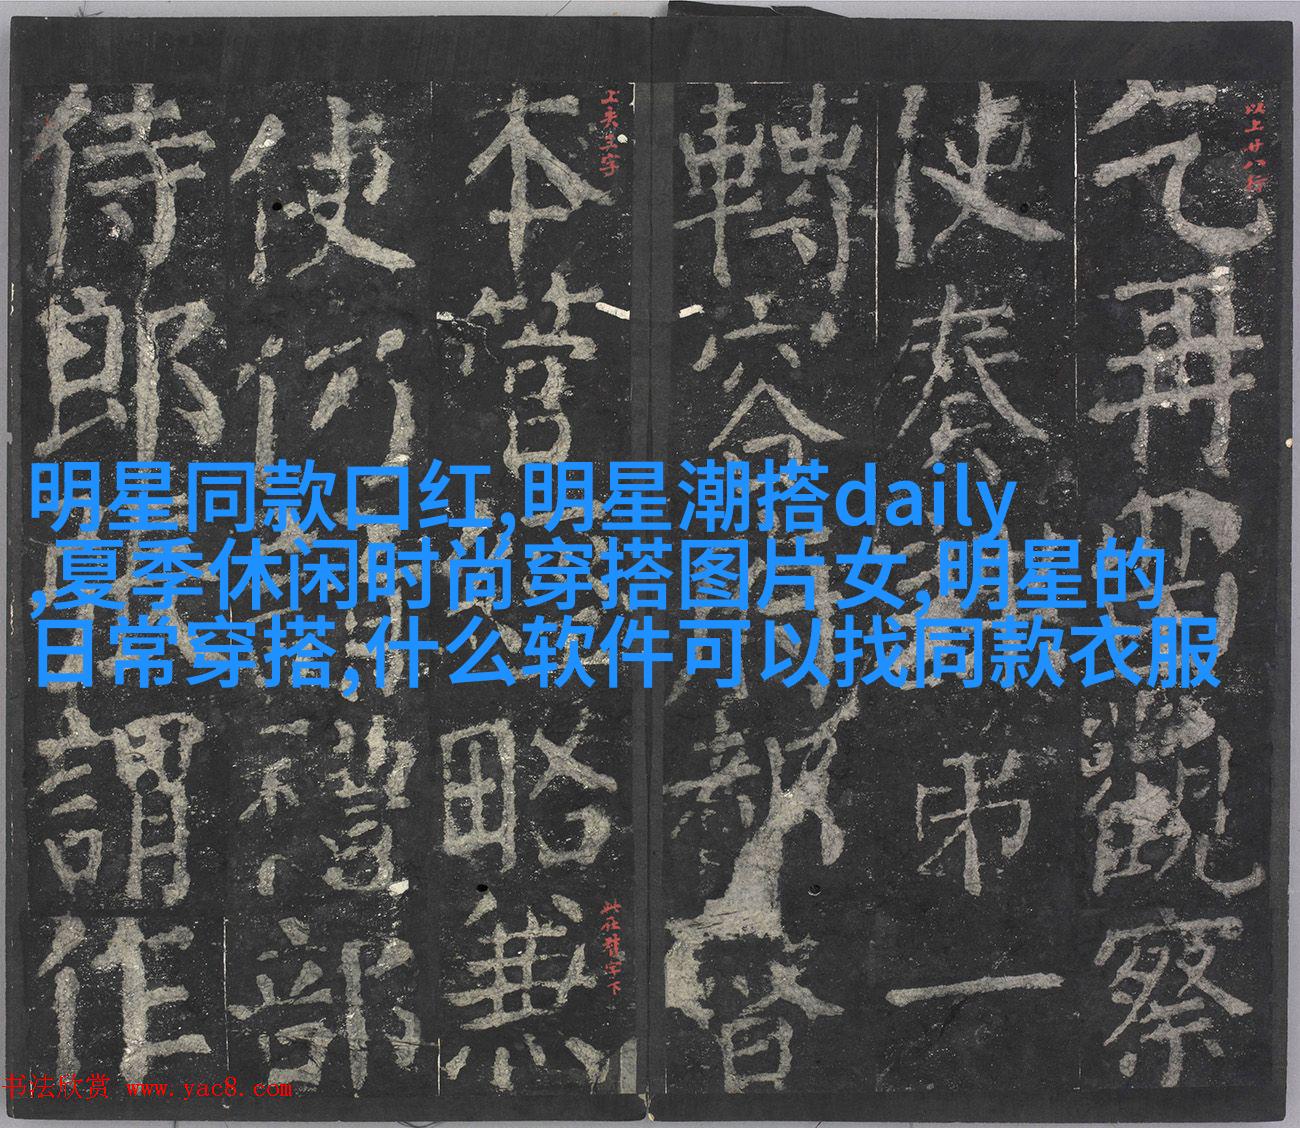 明星同款口红,明星潮搭daily
,夏季休闲时尚穿搭图片女,明星的
日常穿搭,什么软件可以找同款衣服
以上廿八行
乞再觀察
使奏弟一
轉督
本管略無
使禮部
侍郎謂作
书法欣赏 www.yac8.com